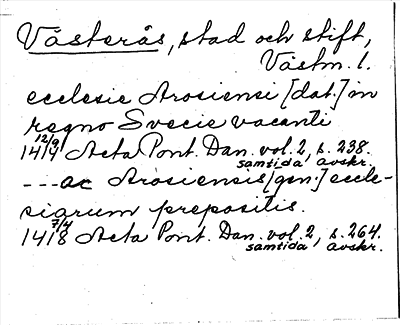 Västerås, stad och stift,
Västm. l.
ecclesie Arosiensi [dat.] in
regno Svecie vacanti
12/9
1414 Acta Pont. Dan. vol. 2, s. 238.
samtida avskr.
---ac Arosiensis [gen.] eccle-
siarum prepositis.
7/4
1418 Acta Pont. Dan. vol. 2, s. 264.
samtida avskr.